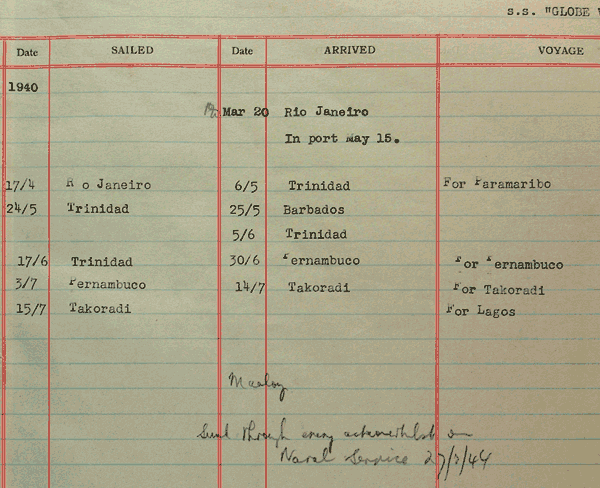 s.s. "GLOBE
Date SAILED Date ARRIVED VOYAGE
1940
Mar 20 Rio Janeiro
In port May 15.
17/4 R o Janeiro 6/5 Trinidad For Paramaribo
24/5 Trinidad 25/5 Barbados
5/6 Trinidad
17/6 Trinidad 30/6 Pernambuco For Pernambuco
3/7 Pernambuco 14/7 Takoradi For Takoradi
15/7 Takoradi For Lagos
Sunk through enemy action whilst on
Naval Service